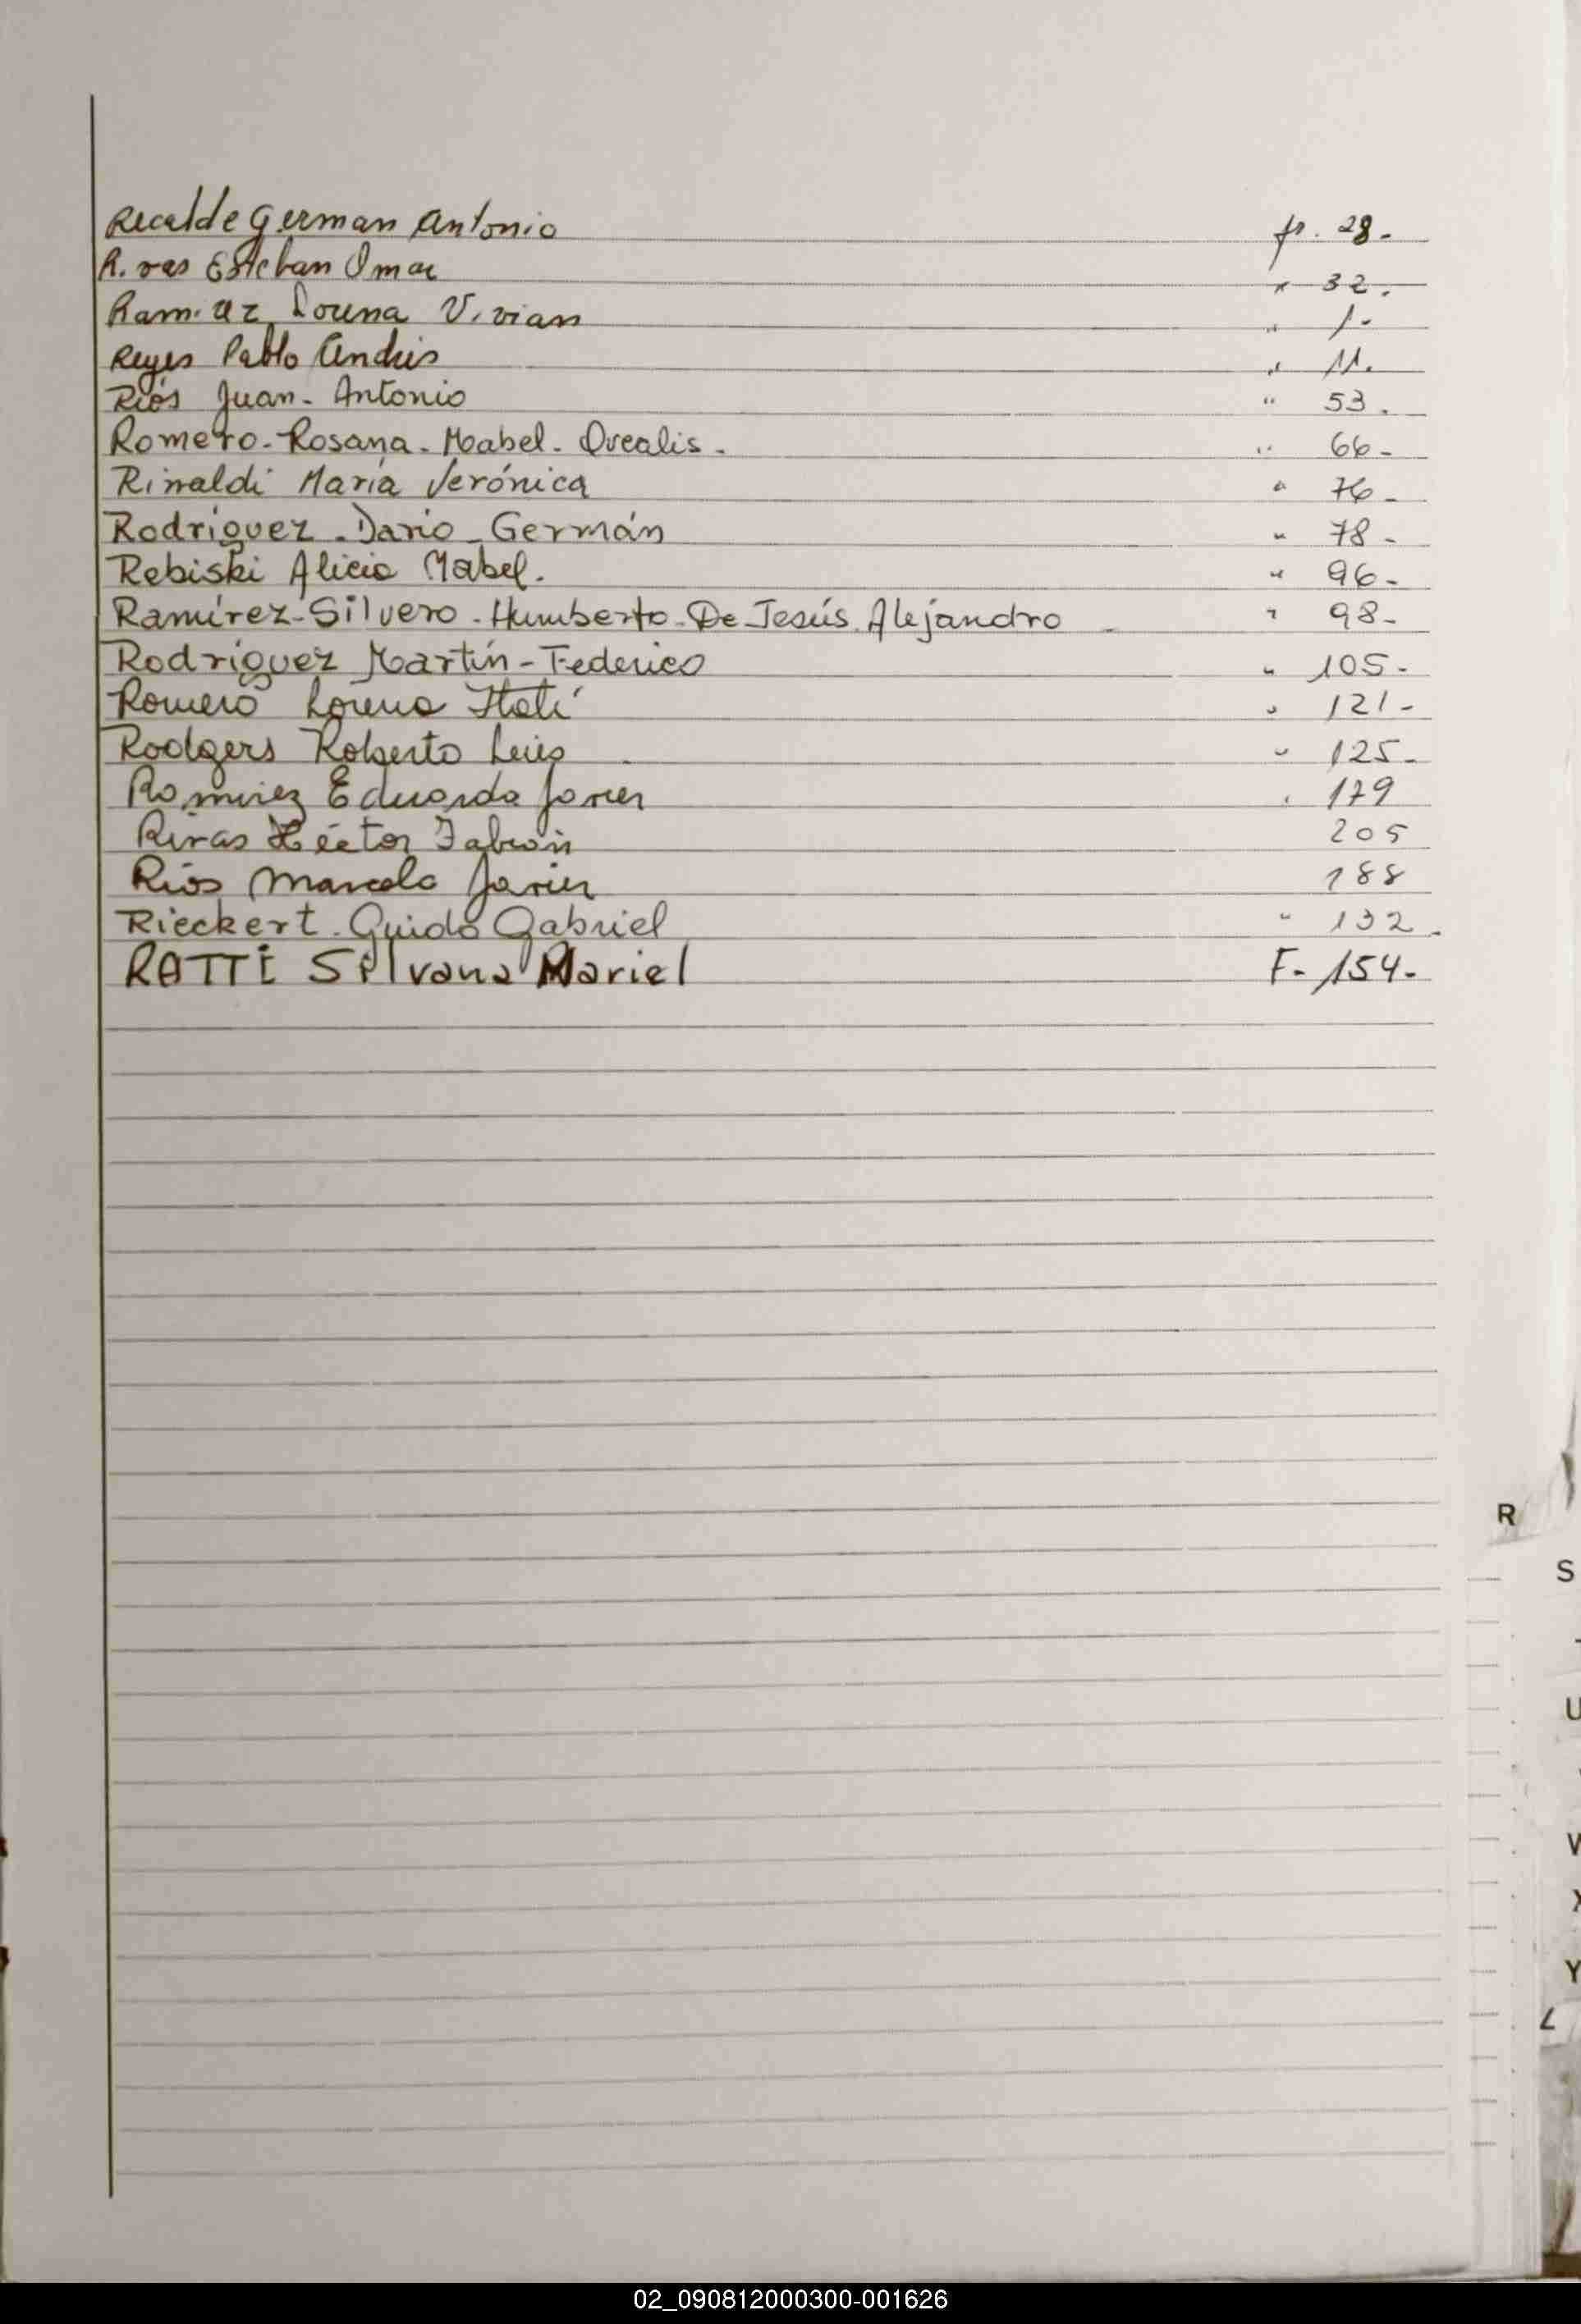 Recalde German Antonio fs. 28.-
Rivas Esteban Omar " 32.
Ramirez Lorena Vivian " 1.-
Reyes Pablo Andrés " 11.
Ríos Juan - Antonio " 53.
Romero - Rosana - Mabel - Orealis - " 66-
Rinaldi María Verónica " 76-
Rodríguez - Dario - Germán " 78-
Rebiski Alicia Mabel. " 96-
Ramírez - Silvero - Humberto - De Jesús Alejandro - " 98-
Rodríguez Martín - Federico " 105-
Romero Lorena Itatí " 121-
Rodgers Roberto Luis " 125-
Ramirez Eduardo Javier " 179
Rivas Héctor Fabián 205
Ríos Marcelo Javier 188
Rieckert - Guido Gabriel " 132.
RATTI Silvana Mariel F- 154-
R
S
U
Y
02_090812000300-001626